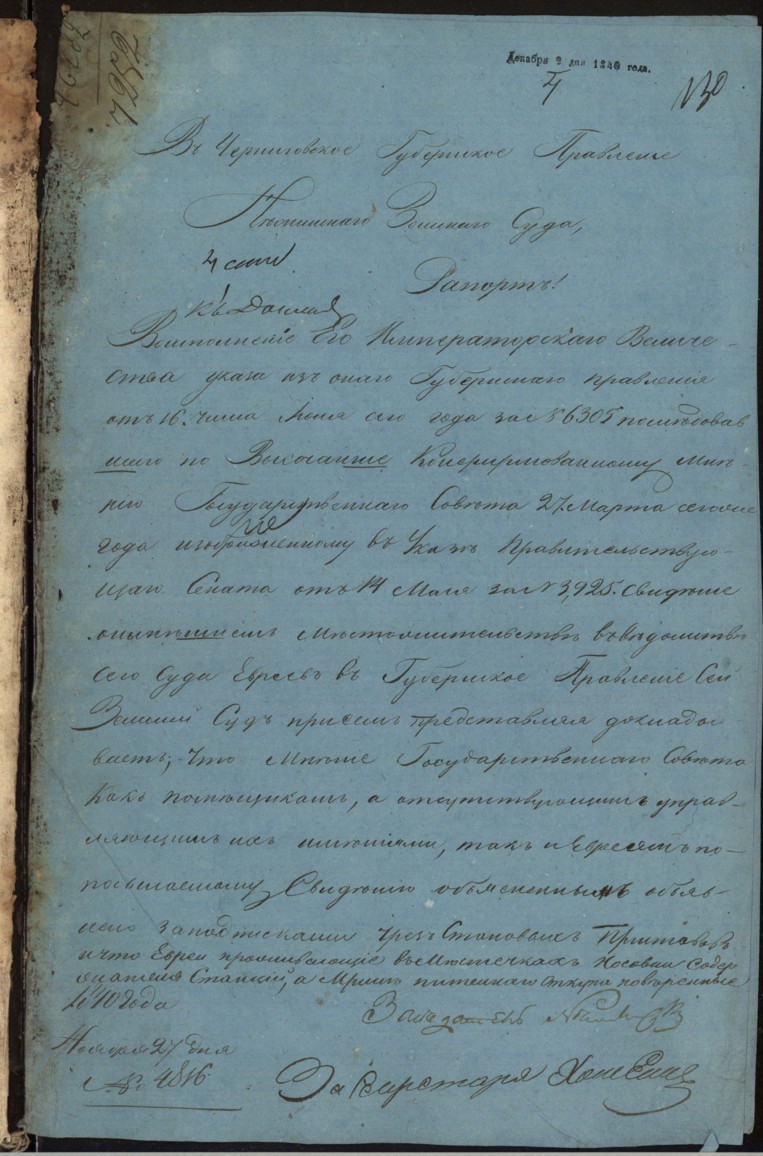 Декабря 2 дня 1840 года.
130
Въ Черниговское Губернское Правленіе
Нѣжинскаго Земскаго Суда,
4 стол
Рапортъ!
Къ Доклад
Воисполненіе Его Императорскаго Величе-
ства указа изъ онаго Губернскаго правленія
отъ 16. числа Іюня сего года за № 6305 последовав
шаго по Высочайше Конфирмованному Мнѣ-
нію Государственнаго Совѣта 27 Марта сегоже
года изображенному въ Указѣ Правительствую-
щаго Сената отъ 14 Маія за № 3,925. Свиденіе
онынѣшнемъ Местожительствѣ въ ведомствѣ
сего Суда Евреевъ въ Губернское Правленіе Сей
Земскій Судъ присемъ представляя докладо-
ваетъ, что Мненіе Государственнаго Совета
какъ помещикамъ, а отсутствующимъ управ-
ляющимъ ихъ именіями, такъ и Евреямъ по-
посылаемому Свиденію объясненнымъ объяв-
лено заподписками чрезъ Становыхъ Приставовъ
и что Евреи проживающіе въ Местечкахъ Носовки Содер
жателя Станціи, а Мрина питейнаго откупа поверенные
1840 года
Заседатель
Ноября 27 дня
№ 4816
За Секретаря